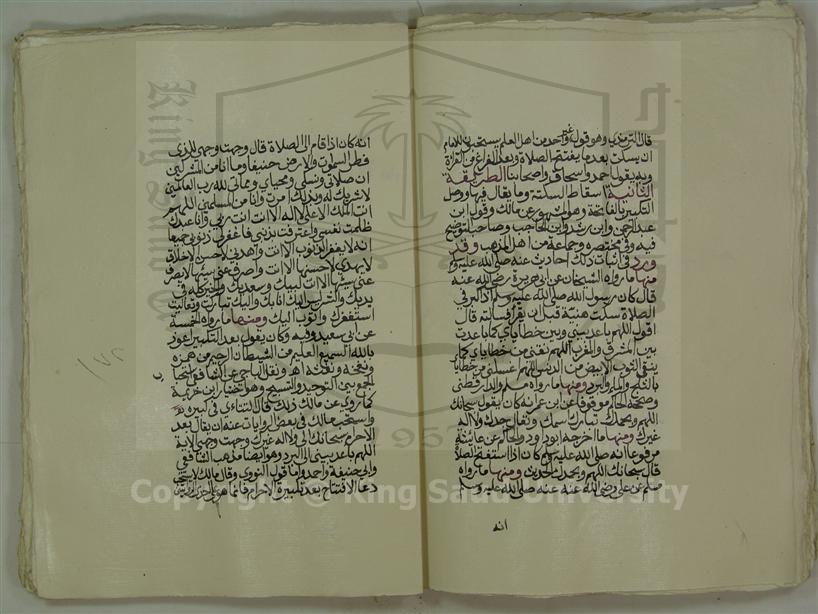 قال الترمذي وهو قول غير واحد من اهل العلم يستحبون للامام
ان يسكت بعد ما يفتتح الصلاة وبعد الفراغ من القراة
وبه يقول احمد واسحاق واصحابنا الطريقة
الثانية اسقاط السكتة وما يقال فيها ووصل
التكبير بالفاتحة وهو مشهور عن مالك وقول ابن
عبد الرحمن وابن رشد وابن الحاجب وصاحب التوضيح
فيه وفي مختصره وجماعة من اهل المذهب وقد
ورد في اثبات ذلك احاديث عنه صلى الله عليه وسلم
منها ما رواه الشيخان عن ابي هريرة رضي الله عنه
قال كان رسول الله صلى الله عليه وسلم اذا كبر في
الصلاة سكت هنية قبل ان يقرا فسالته قال
اقول اللهم باعد بيني وبين خطاياي كما باعدت
بين المشرق والمغرب اللهم نقني من خطاياي كما
ينقى الثوب الابيض من الدنس اللهم اغسلني من خطاياي
بالثلج والماء والبرد ومنها ما رواه مسلم والدارقطني
وصححه الحاكم موقوفا عن عمر انه كان يقول سبحانك
اللهم وبحمدك تبارك اسمك وتعالى جدك ولا اله
غيرك ومنها ما خرجه ابو داود والحاكم عن عائشة
مرفوعا انه صلى الله عليه وسلم كان اذا استفتح الصلاة
قال سبحانك اللهم وبحمدك ومنها ما رواه
مسلم عن علي رضي الله عنه عنه صلى الله عليه وسلم
انه
انه كان اذا قام الى الصلاة قال وجهت وجهي للذي
فطر السموات والارض حنيفا وما انا من المشركين
ان صلاتي ونسكي ومحياي ومماتي لله رب العالمين
لا شريك له وبذلك امرت وانا من المسلمين اللهم
انت الملك لا اله الا انت انت ربي وانا عبدك
ظلمت نفسي واعترفت بذنبي فاغفر لي ذنوبي جميعا
انه لا يغفر الذنوب الا انت واهدني لاحسن الاخلاق
لا يهدي لاحسنها الا انت واصرف عني سيئها لا يصرف
عني سيئها الا انت لبيك وسعديك والخير كله في
يديك والشر ليس اليك انا بك واليك تباركت وتعاليت
استغفرك واتوب اليك ومنها ما رواه الخمسة
عن ابي سعيد وفيه وكان يقول بعد التكبير اعوذ
بالله السميع العليم من الشيطان الرجيم من همزه
ونفخه ونفثه اهـ ونقل الباجي عن الشافعي
الجمع بين التوجيه والتسبيح وهو اختيار ابن خزيمة
كما روي عن مالك ذلك قال التتائي في كبيره
واستحب مالك في بعض الروايات عنه ان يقال بعد
الاحرام سبحانك الى ولا اله غيرك وجهت وجهي الاية
اللهم باعد بيني الى البرد وهو ايضا مذهب الشافعي
وابي حنيفة واحمد واما قول النووي وقال مالك لا يستحب
دعا الافتتاح بعد تكبيرة الاحرام فانما هو
١٧٢
King Saud University
1957
Copyright © King Saud University